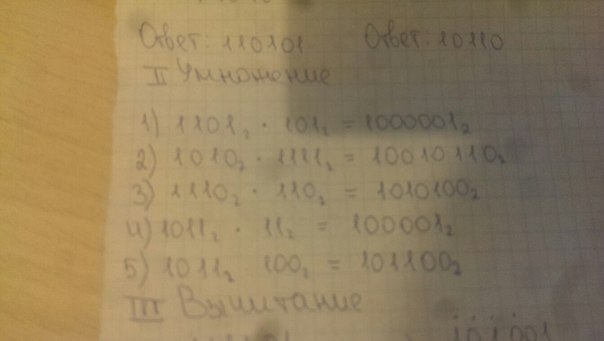 Ответ: 110101 Ответ: 10110
II Умножение
1) 1101₂ · 101₂ = 1000001₂
2) 1010₂ · 1111₂ = 10010110₂
3) 1110₂ · 110₂ = 1010100₂
4) 1011₂ · 11₂ = 100001₂
5) 1011₂ 100₂ = 101100₂
III Вычитание
101001